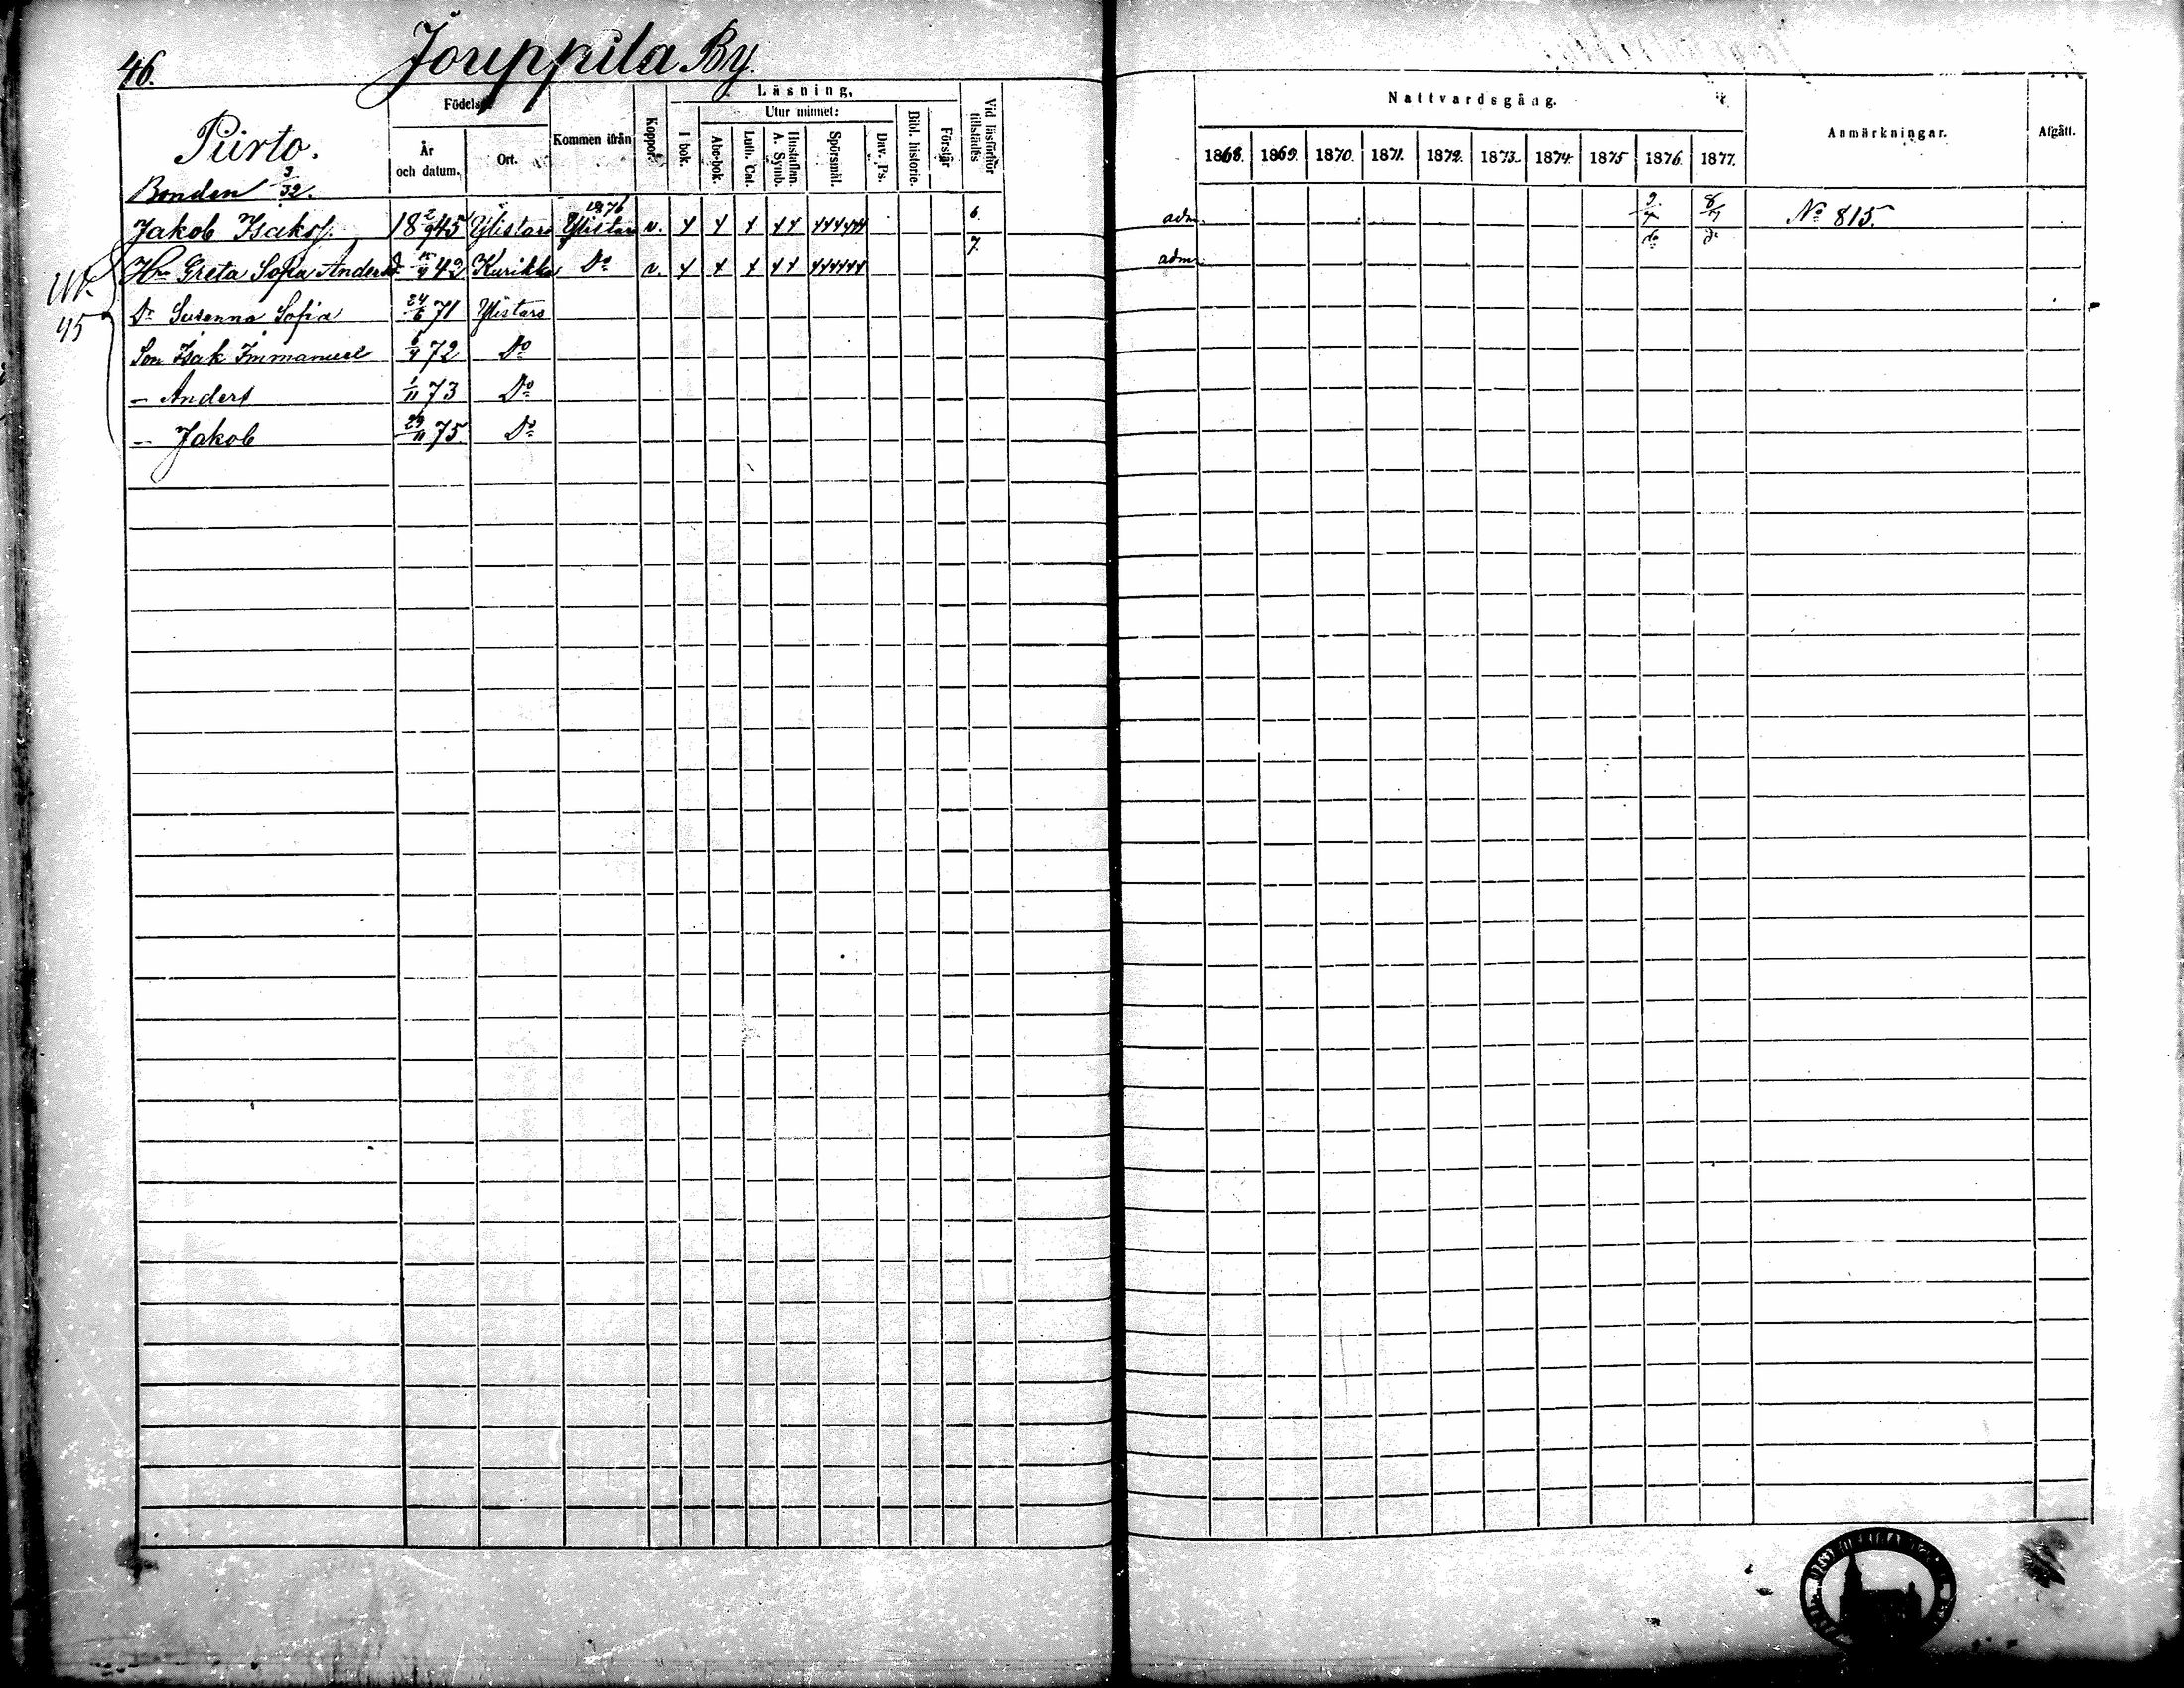 46.
Jouppila By.
Födelse
År och datum.
Ort.
Kommen ifrån
Koppor.
Läsning,
I bok.
Utur minnet:
Abc-bok.
Luth. Cat.
Hustaflan. A. Symb.
Spörsmål.
Dav. Ps.
Bibl. historie.
Förstår
Vid läsförhör tillstädes
Nattvardsgång.
1868. 1869. 1870. 1871. 1872. 1873. 1874. 1875 1876. 1877.
Anmärkningar.
Afgått.
Piirto.
Bonden 3/32.
Jakob Isaksf. 18 2/9 45 Ylistaro 1876 Ylistaro v. 6. adm. 2/7 8/7 No 815.
Hu Greta Sofia Andersd. 42 Kurikka Do v. 7. adm. do do
Dr Susanna Sofia 24/6 71 Ylistaro
Son Isak Immanuel 72 Do
– Anders 1/11 73 Do
– Jakob 29/11 75 Do
45